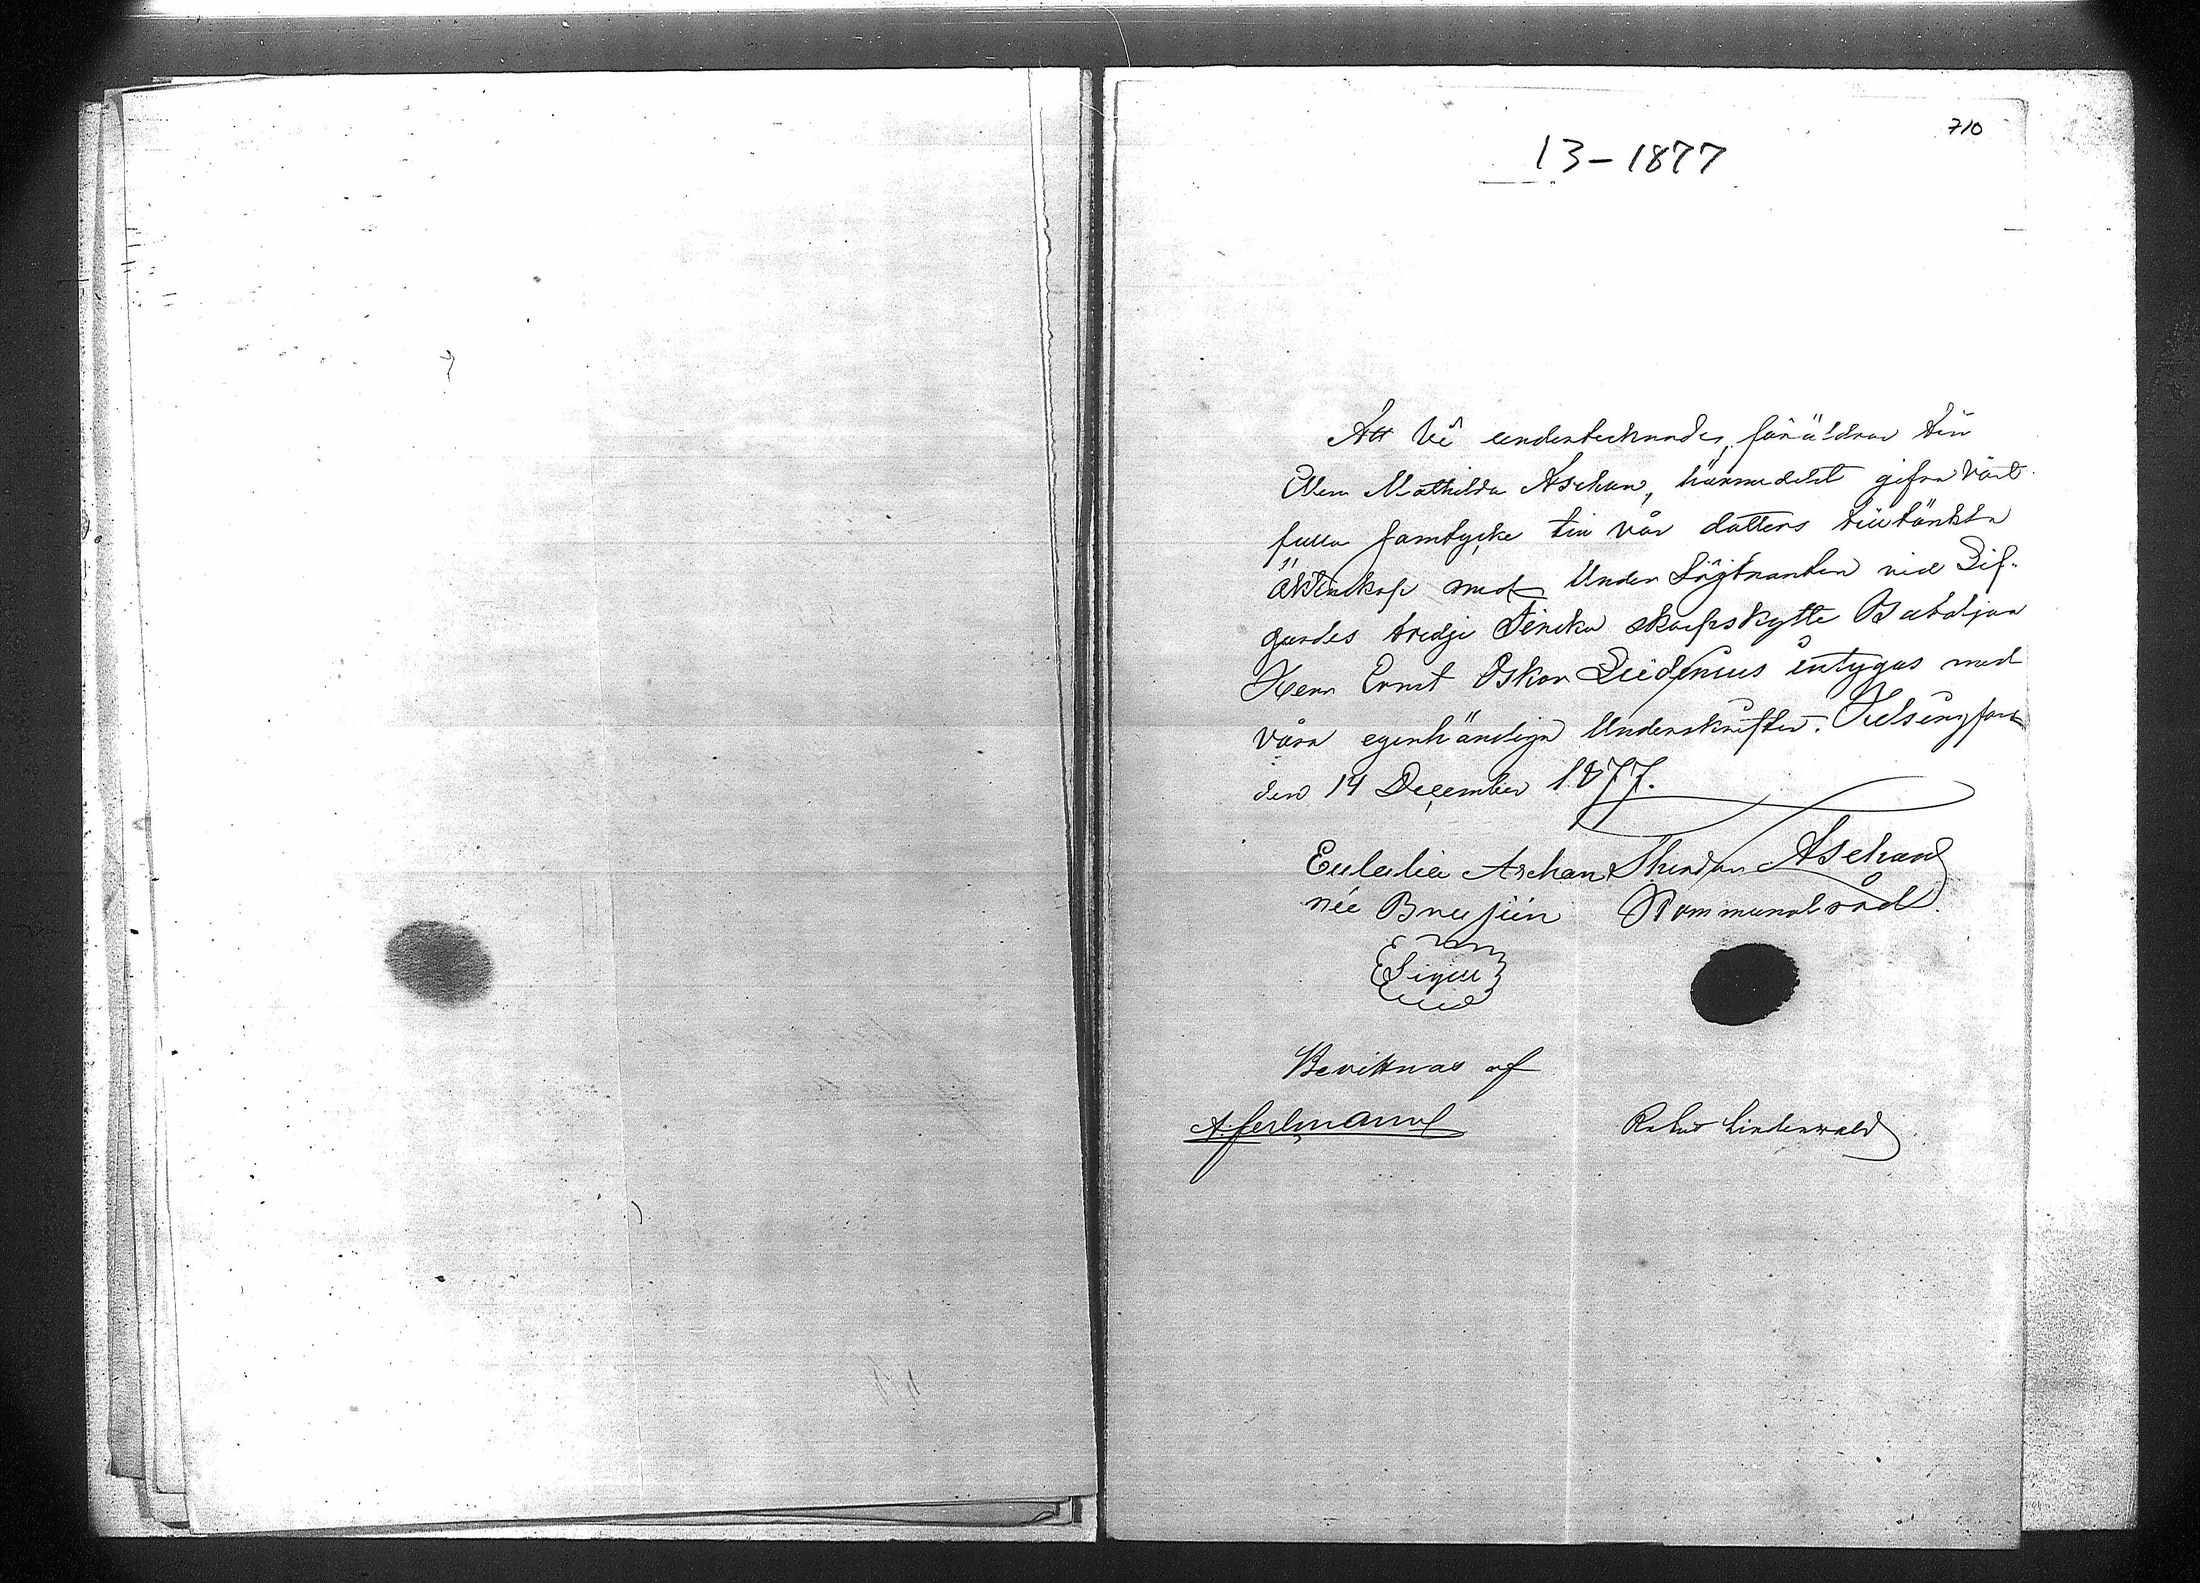 710
13-1877
Att vi undertecknade, föräldrar till
Ellen Mathilda Aschan, härmedelst gifva vårt
fulla samtycke till vår dotters tilltänkta
äktenskap med Under Löjtnanten vid Lif-
gardes tredje Finska skarpskytte Bataljon
Herr Ernst Oskar Zidenius intygas med
våra egenhändiga Underskrifter. Helsingfors
den 14 December 1877.
Eulalia Aschan Aschan
née Brusiin Kommunalråd.
Sigill
Bevittnas af
A. Lindenwald